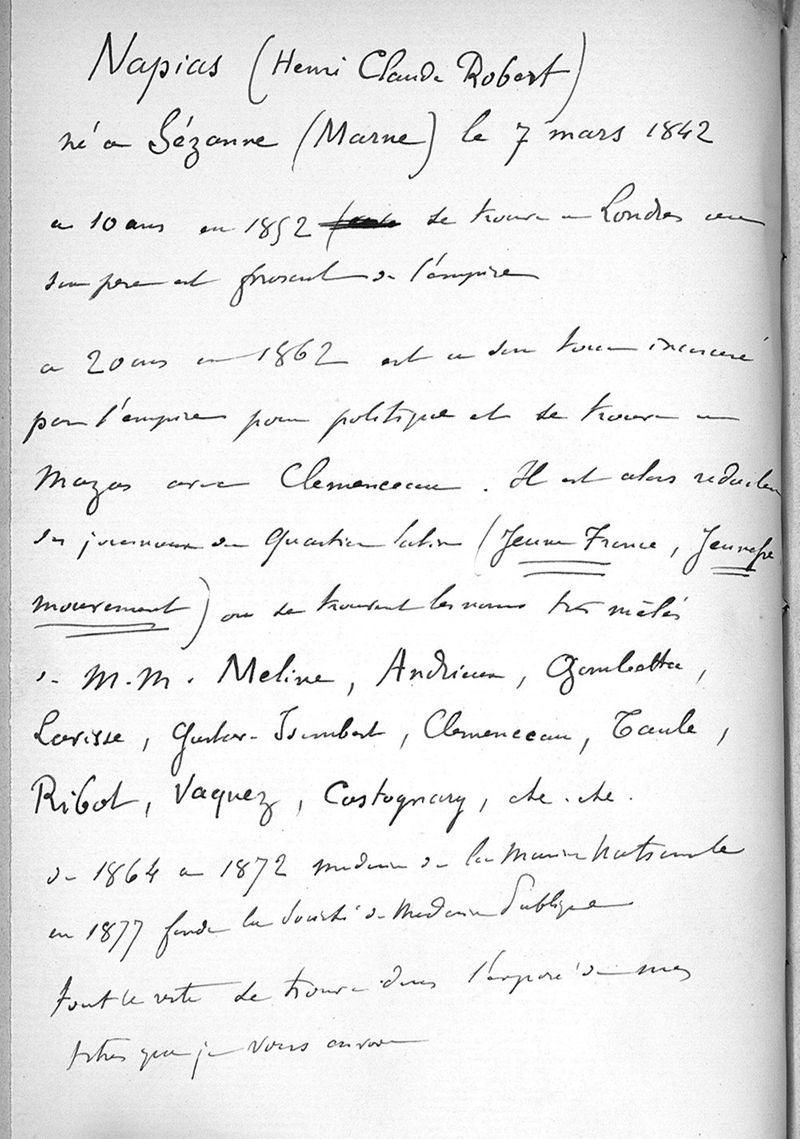 Napias (Henri Claude Robert)
né à Sézanne (Marne) le 7 mars 1842
à 10 ans en 1852 se trouve à Londres où
son père est proscrit de l'empire
à 20 ans en 1862 est à son tour incarcéré
par l'empire pour politique et se trouve à
Mazas avec Clemenceau. Il est alors rédacteur
des journaux du Quartier latin (Jeune France,
mouvement) où se trouvent les noms très mêlés
de M.M. Meline, Andrieux, Gambetta,
Lavisse, Gustave Isambert, Clemenceau, Taule,
Ribot, Vaquez, Castagnary, etc. etc.
de 1864 à 1872 médecin de la Marine Nationale
en 1877 fonde la Société de Médecine Publique
Tout le reste se trouve dans l'exposé de mes
titres que je vous envoie